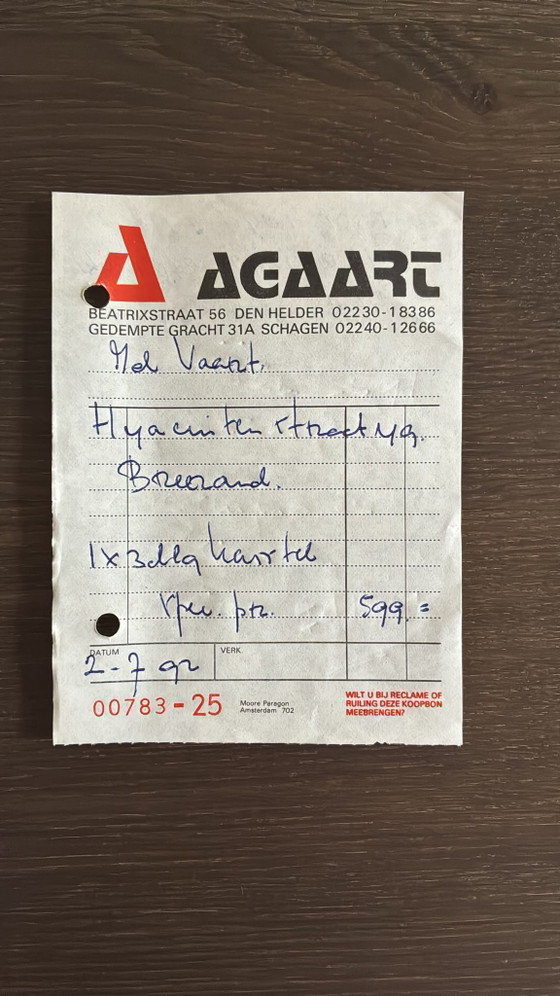 AGAART
BEATRIXSTRAAT 56 DEN HELDER 02230-18386
GEDEMPTE GRACHT 31A SCHAGEN 02240-12666
Vaart.
Hyacinten straat
Breezand.
1x 3dlg
599 =
DATUM VERK.
2-7 92
00783-25
Moore Paragon
Amsterdam 702
WILT U BIJ RECLAME OF
RUILING DEZE KOOPBON
MEEBRENGEN?